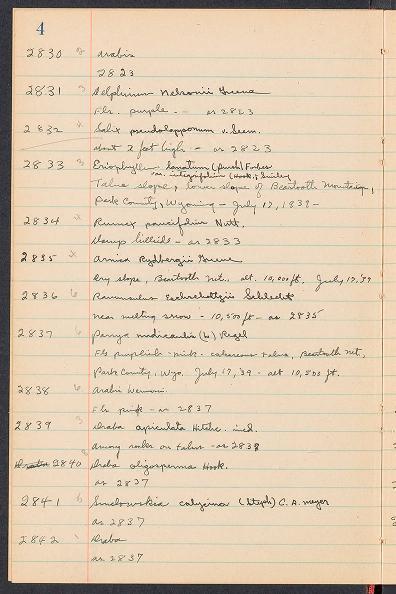 4
2830 Arabis
2823
2831 3 Delphinium Nelsonii Greene
Fls. purple - - as 2823
2832 Salix pseudolapponum v. Seem.
about 2 feet high - as 2823
2833 3 Eriophyllum lanatum (Pursh) Forbes
var. integrifolium (Hook.) Smiley
Talus slope, lower slope of Beartooth Mountain,
Park County, Wyoming - July 17, 1939 -
2834 Rumex paucifolius Nutt.
Damp hillside - as 2833
2835 Arnica Rydbergii Greene
Dry slope, Beartooth Mt., alt. 10,000 ft. July 17, '39
2836 6 Ranunculus Eschscholtzii Schlecht
near melting snow - 10,500 ft - as 2835
2837 6 Parrya nudicaulis (L) Regel
Fls purplish - calcareous talus, Beartooth Mt,
Park County, Wyo. July 17, '39 - alt 10,500 ft.
2838 6 Arabis
Fls pink - as 2837
2839 3 Draba apiculata Hitchc. ined.
among rocks on talus - as 2838
Draba 2840 Draba oligosperma Hook.
as 2837
2841 6 Smelowskia calycina (Steph) C. A. Meyer
as 2837
2842 1 Draba
as 2837